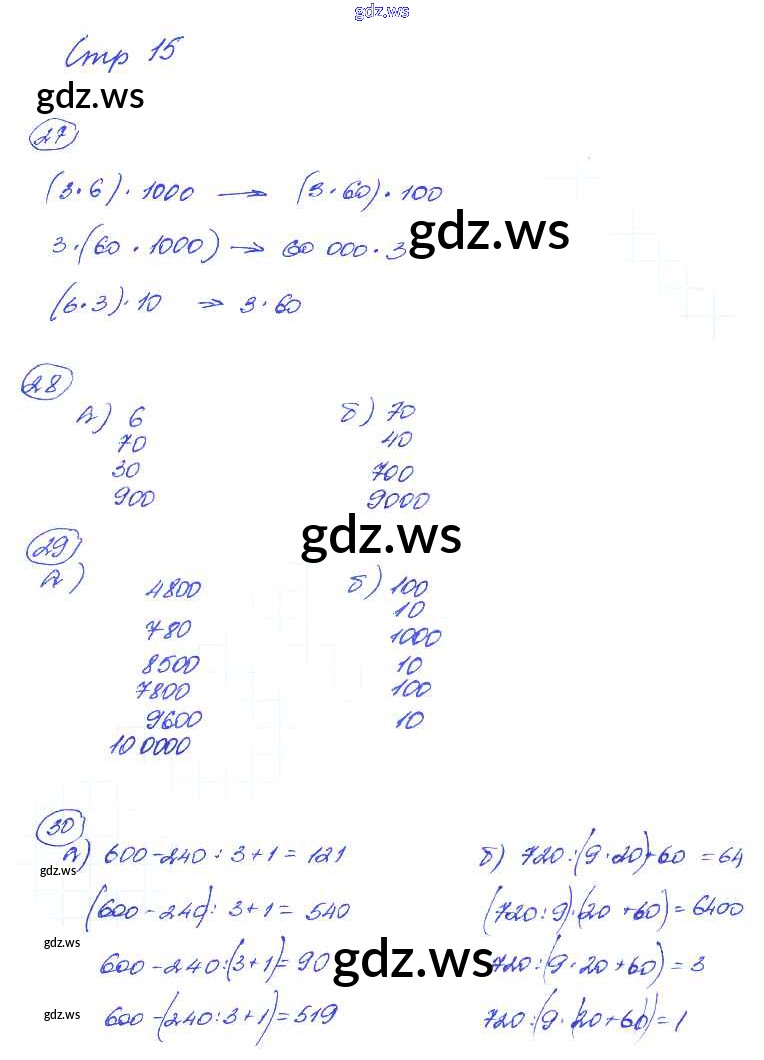 gdz.ws
Стр 15
gdz.ws
27
(3·6)·1000 → (3·60)·100
gdz.ws
3·(60·1000) → 60 000·3
(6·3)·10 → 3·60
28
А) 6 б) 70
70 40
30 700
900 9000
gdz.ws
29
А) 4800 б) 100
780 10
8500 1000
7800 10
9600 100
100000 10
30
А) 600-240:3+1=121 б) 720:(9·20)+60=64
gdz.ws
(600-240):3+1=540 (720:9)·(20+60)=6400
gdz.ws
600-240:(3+1)=90 720:(9·20+60)=3
gdz.ws
600-(240:3+1)=519 720:(9·(20+60))=1
gdz.ws